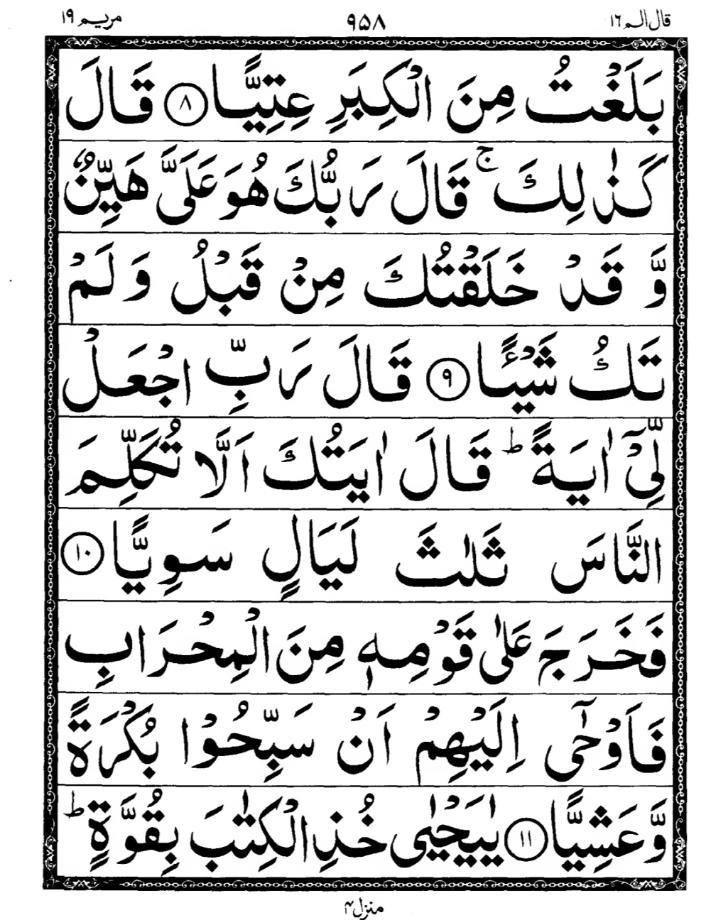 قال الم ١٦ ٩٥٨ مريم ١٩
بَلَغْتُ مِنَ الْكِبَرِ عِتِيًّا ٨ قَالَ
كَذٰلِكَ ۚ قَالَ رَبُّكَ هُوَ عَلَيَّ هَيِّنٌ
وَّ قَدْ خَلَقْتُكَ مِنْ قَبْلُ وَلَمْ
تَكُ شَيْـًٔا ٩ قَالَ رَبِّ اجْعَلْ
لِّيْۤ اٰيَةً ؕ قَالَ اٰيَتُكَ اَلَّا تُكَلِّمَ
النَّاسَ ثَلٰثَ لَيَالٍ سَوِيًّا ١٠
فَخَرَجَ عَلٰى قَوْمِهٖ مِنَ الْمِحْرَابِ
فَاَوْحٰۤى اِلَيْهِمْ اَنْ سَبِّحُوْا بُكْرَةً
وَّعَشِيًّا ١١ يٰيَحْيٰى خُذِ الْكِتٰبَ بِقُوَّةٍ ؕ
منزل ۴